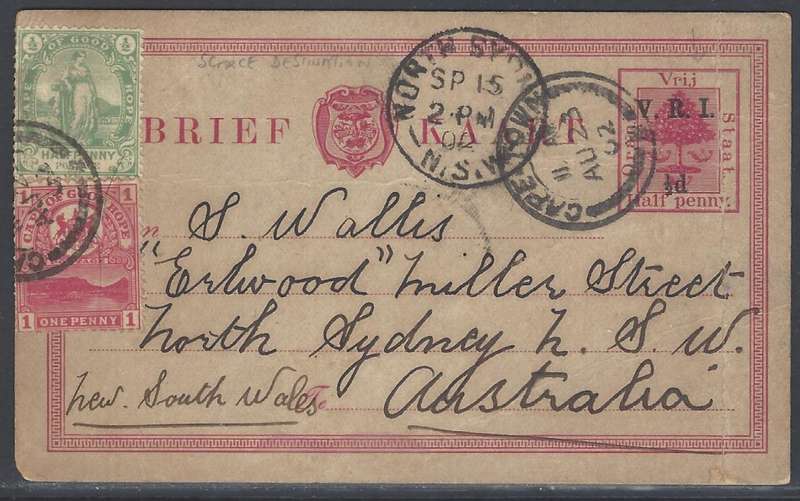 ½ OF GOOD ½
CAPE
HOPE
HALF PENNY
POSTAGE
1 1
CAPE OF GOOD HOPE
POSTAGE
1 ONE PENNY 1
SCARCE DESTINATION
BRIEF KAART
NORTH SYDNEY
SP 15
2-PM
02
N.S.W
CAPE TOWN
AU 23
02
Vrij
V. R. I.
Oranje
Staat.
½d
Half penny
S. Wallis
"Erlwood" Miller Street
North Sydney N. S. W.
New. South Wales
Australia